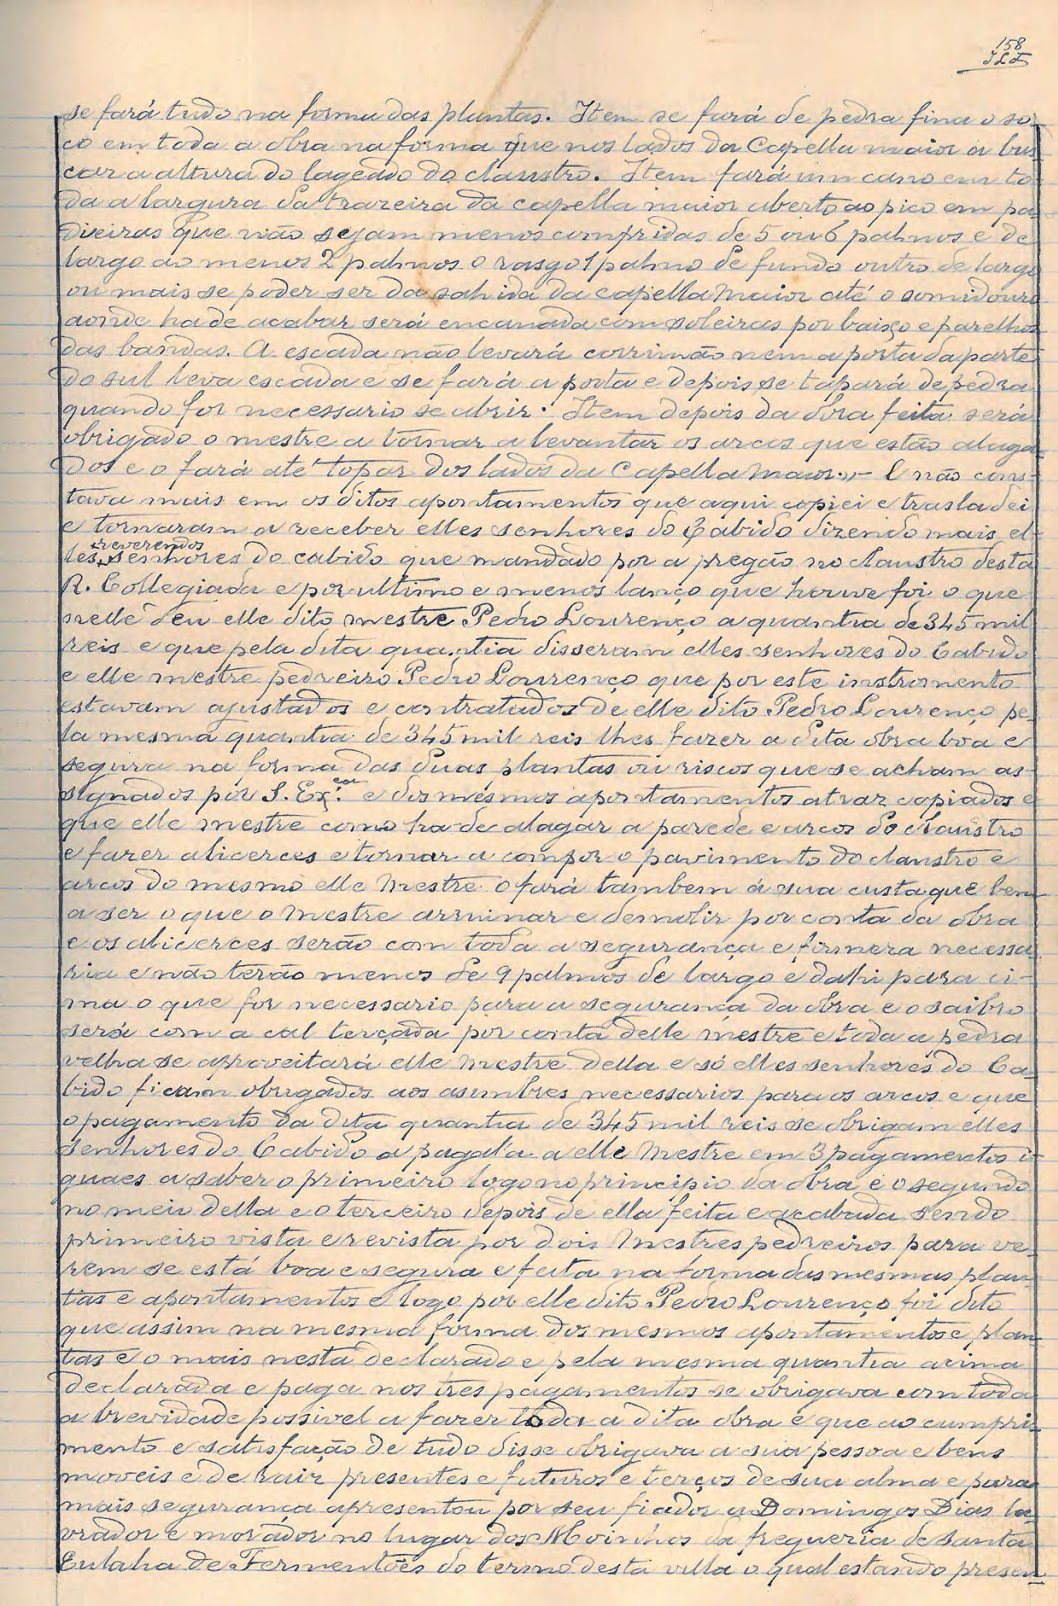 158
se fará tudo na forma das plantas. Item se fará de pedra fina o so-
co em toda a obra na forma que nos lados da Capella maior a bus
car a altura do lageado do claustro. Item fará um cano em to
da a largura da trazeira da capella maior aberto ao pico em pa
dieiras que não sejam menos compridas de 5 ou 6 palmos e de
largo ao menos 2 palmos o rasgo 1 palmo de fundo outro de largo
ou mais se poder ser da sahida da capella maior até o somidouro
aonde ha de acabar será encanada com soleiras por baixo e parelhos
das bandas. A escada não levará corrimão nem a porta da parte
do sul leva escada e se fará a porta e depois se tapará de pedra
quando for necessario se abrir. Item depois da obra feita será
obrigado o mestre a tornar a levantar os arcos que estão alaga
dos e o fará até topar dos lados da Capella maior,,- E não cons-
tava mais em os ditos apontamentos que aqui copiei e trasladei
e tornaram a receber elles senhores do Cabido dizendo mais el-
les reverendos senhores do cabido que mandado por a pregão no claustro desta
R. Collegiada e por ultimo e menos lanço que houve foi o que
nelle deu elle dito mestre Pedro Lourenço a quantia de 345 mil
reis e que pela dita quantia disseram elles senhores do Cabido
e elle mestre pedreiro Pedro Lourenço que por este instromento
estavam ajustados e contratados de elle dito Pedro Lourenço pe-
la mesma quantia de 345 mil reis lhes fazer a dita obra boa e
segura na forma das duas plantas ou riscos que se acham as-
signados por S. Ex.cia e dos mesmos apontamentos atraz copiados e
que elle mestre como ha-de alagar a parede e arcos do claustro
e fazer alicerces e tornar a compor o pavimento do claustro e
arcos do mesmo elle Mestre o fará tambem á sua custa que bem
a ser o que o Mestre arruinar e demolir por conta da obra
e os alicerces serão com toda a segurança e firmeza necessa
ria e não terão menos de 9 palmos de largo e dahi para ci-
ma o que for necessario para a segurança da obra e o saibro
será com a cal terçada por conta delle mestre e toda a pedra
velha se aproveitará elle Mestre della e só elles senhores do Ca-
bido ficam obrigados aos asimbres necessarios para os arcos e que
o pagamento da dita quantia de 345 mil reis se obrigam elles
senhores do Cabido a pagal'a a elle Mestre em 3 pagamentos i-
guaes a saber o primeiro logo no principio da obra e o segundo
no meio della e o terceiro depois de ella feita e acabada sendo
primeiro vista e revista por dois Mestres pedreiros para ve-
rem se está boa e segura e feita na forma das mesmas plan-
tas e apontamentos e logo por elle dito Pedro Lourenço foi dito
que assim na mesma forma dos mesmos apontamentos e plan-
tas e o mais nesta declarado e pela mesma quantia acima
declarada e paga nos tres pagamentos se obrigava com toda
a brevidade possivel a fazer toda a dita obra e que ao cumpri-
mento e satisfação de tudo disse obrigava a sua pessoa e bens
moveis e de raiz presentes e futuros e terços de sua alma e para
mais segurança apresentou por seu fiador a Domingos Dias la-
vrador e morador no lugar dos Moinhos da freguezia de Santa
Eulalia de Fermentões do termo desta villa o qual estando presen-